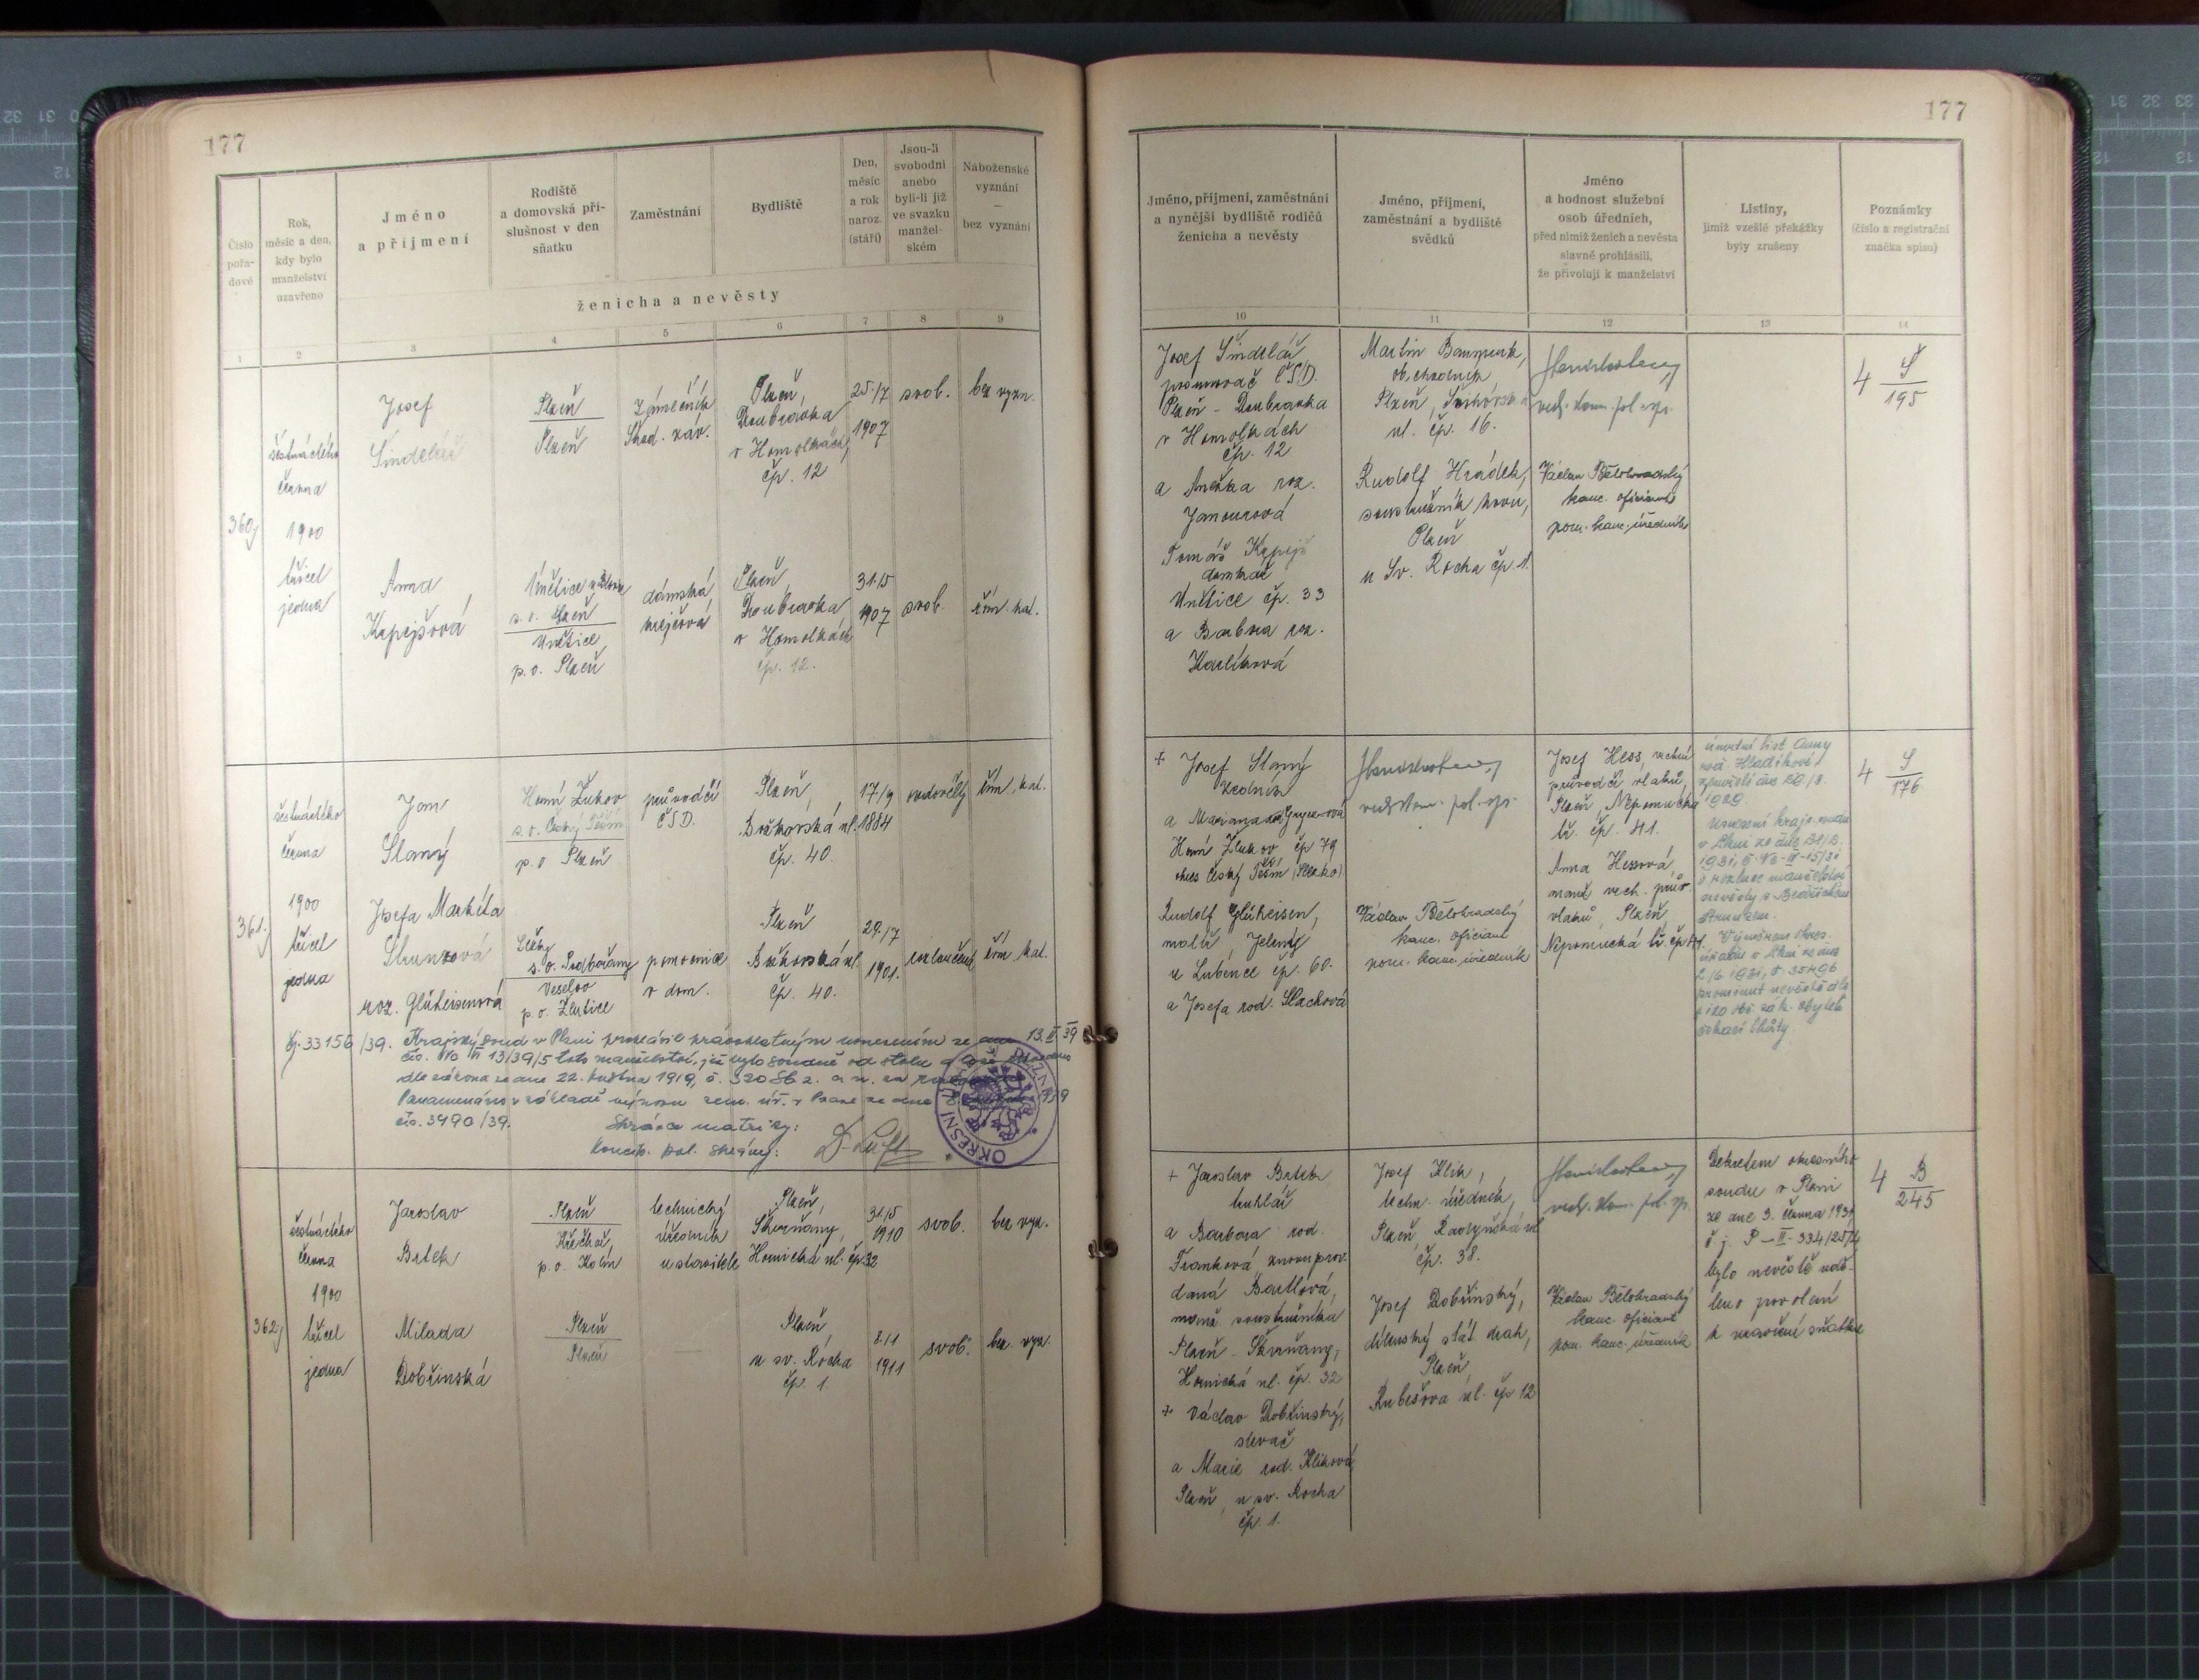 177
177
Číslo
pořa-
dové
Rok,
měsíc a den,
kdy bylo
manželství
uzavřeno
Jméno
a příjmení
Rodiště
a domovská pří-
slušnost v den
sňatku
Zaměstnání
Bydliště
Den,
měsíc
a rok
naroz.
(stáří)
Jsou-li
svobodni
anebo
byli-li již
ve svazku
manžel-
ském
Náboženské
vyznání
—
bez vyznání
ženicha a nevěsty
1
2
3
4
5
6
7
8
9
360
šestnáctého
června
1900
třicet
jedna
Josef
Šindelář
Plzeň
Plzeň
zámečník
Škod. záv.
Plzeň,
Doubravka
v Homolkách
čp. 12
25./7
1907
svob.
bez vyzn.
Anna
Krpejšová
Úněšice
s. o. Plzeň
Únětice
p. o. Plzeň
dámská
krejčová
Plzeň,
Doubravka,
v Homolkách
čp. 12.
31./5
1907
svob.
řím. kat.
361.
šestnáctého
června
1900
třicet
jedna
Jan
Slaný
Horní Žukov
s. o. Český Těšín
p. o. Plzeň
průvodčí
ČSD.
Plzeň,
Božkovská ul.
čp. 40.
17/9
1884
ovdovělý
řím. kat.
Josefa Markéta
Strunzová
roz. Glüheisenová
s. o. Podbořany
Veselov
p. o. Žlutice
pomocnice
v dom.
Plzeň
Božkovská ul.
čp. 40.
29./7
1901.
rozloučená
řím kat.
čj. 33156/39. Krajský soud v Plzni prohlásil právoplatným usnesením ze dne 13. II. 39
čís. Nc VI 13/39/5 toto manželství, jež bylo soudně od stolu a lože
dle zákona ze dne 22. května 1919, č. 320 Sb. z. a n. za
Poznamenáno v základě výnosu zem. úř. v Praze ze dne 1939
čís. 3490/39.
Správce matriky:
koncip. pol. správy:
OKRESNÍ
362
šestnáctého
června
1900
třicet
jedna
Jaroslav
Brtek
Plzeň
Křečhoř,
p. o. Kolín
technický
úředník
u stavitele
Plzeň,
Skvrňany,
Hornická ul. čp. 32
31./5
1910
svob.
bez vyz.
Milada
Dobřinská
Plzeň
Plzeň
—
Plzeň
u sv. Rocha
čp. 1.
8./1
1911
svob.
bez. vyz.
Jméno, příjmení, zaměstnání
a nynější bydliště rodičů
ženicha a nevěsty
Jméno, příjmení,
zaměstnání a bydliště
svědků
Jméno
a hodnost služební
osob úředních,
před nimiž ženich a nevěsta
slavně prohlásili,
že přivolují k manželství
Listiny,
jimiž vzešlé překážky
byly zrušeny
Poznámky
(číslo a registrační
značka spisu)
10
11
12
13
14
Josef Šindelář
posunovač ČSD.
Plzeň - Doubravka
v Homolkách
čp. 12
a Anežka roz.
Janourová
Tomáš Krpejš
domkář
Únětice čp. 33
a Barbora roz.
Karlíková
Martin
obchodník
Plzeň,
ul. čp. 16.
Rudolf Hrádek,
soustružník kovu,
Plzeň
u Sv. Rocha čp. 1.
vrch. kom. pol. spr.
Václav Bělohradský
kanc. oficiant
pom. kanc. úředník
4 Š
195
+ Josef Slaný
zedník
a Marianna
Horní Žukov čp 79
okres Český Těšín (Slezsko)
Rudolf Glüheisen,
malíř, Jelení
u Lubence čp. 60.
a Josefa rod. Slachová
vrch. kom. pol. spr.
Václav Bělohradský
kanc. oficiant
pom. kanc. úředník
Josef Hess, vrchní
průvodčí vlaků,
Plzeň, Nepomucká
tř. čp. 41.
Anna Hessová,
manž. vrch. prův.
vlaků, Plzeň,
Nepomucká tř. čp. 41.
úmrtní list Anny
1929.
Usnesení kraj. soudu
v Plzni ze dne
1931, č. Nc-VI-15/31
o rozluce manželství
nevěsty s Bedřichem
Strunzem.
Výnosem okres.
úřadu v Plzni ze dne
2/6 1931, č. 35496
prominut nevěstě dle
§ 120 obč. zák. zbytek
čekací lhůty.
4 S
176
+ Jaroslav Brtek
truhlář
a Barbora rod.
Franková, znovuprov-
daná Bartlová,
manž. soustružníka
Plzeň - Skvrňany,
Hornická ul. čp. 32
+ Václav Dobřinský,
slévač
a Marie rod. Klíková
Plzeň, u sv. Rocha
čp. 1.
Josef Klik,
techn. úředník,
Plzeň, Radyňská ul
čp. 38.
Josef Dobřinský,
dílenský stát. drah,
Plzeň,
Rubešova ul. čp 12
vrch. kom. pol. sp.
Václav Bělohradský
kanc. oficiant
pom. kanc. úředník
Dekretem okresního
soudu v Plzni
ze dne 3. června 1931
č. j. P-II-334/25/
bylo nevěstě udě-
leno povolení
k uzavření sňatku
4 B
245